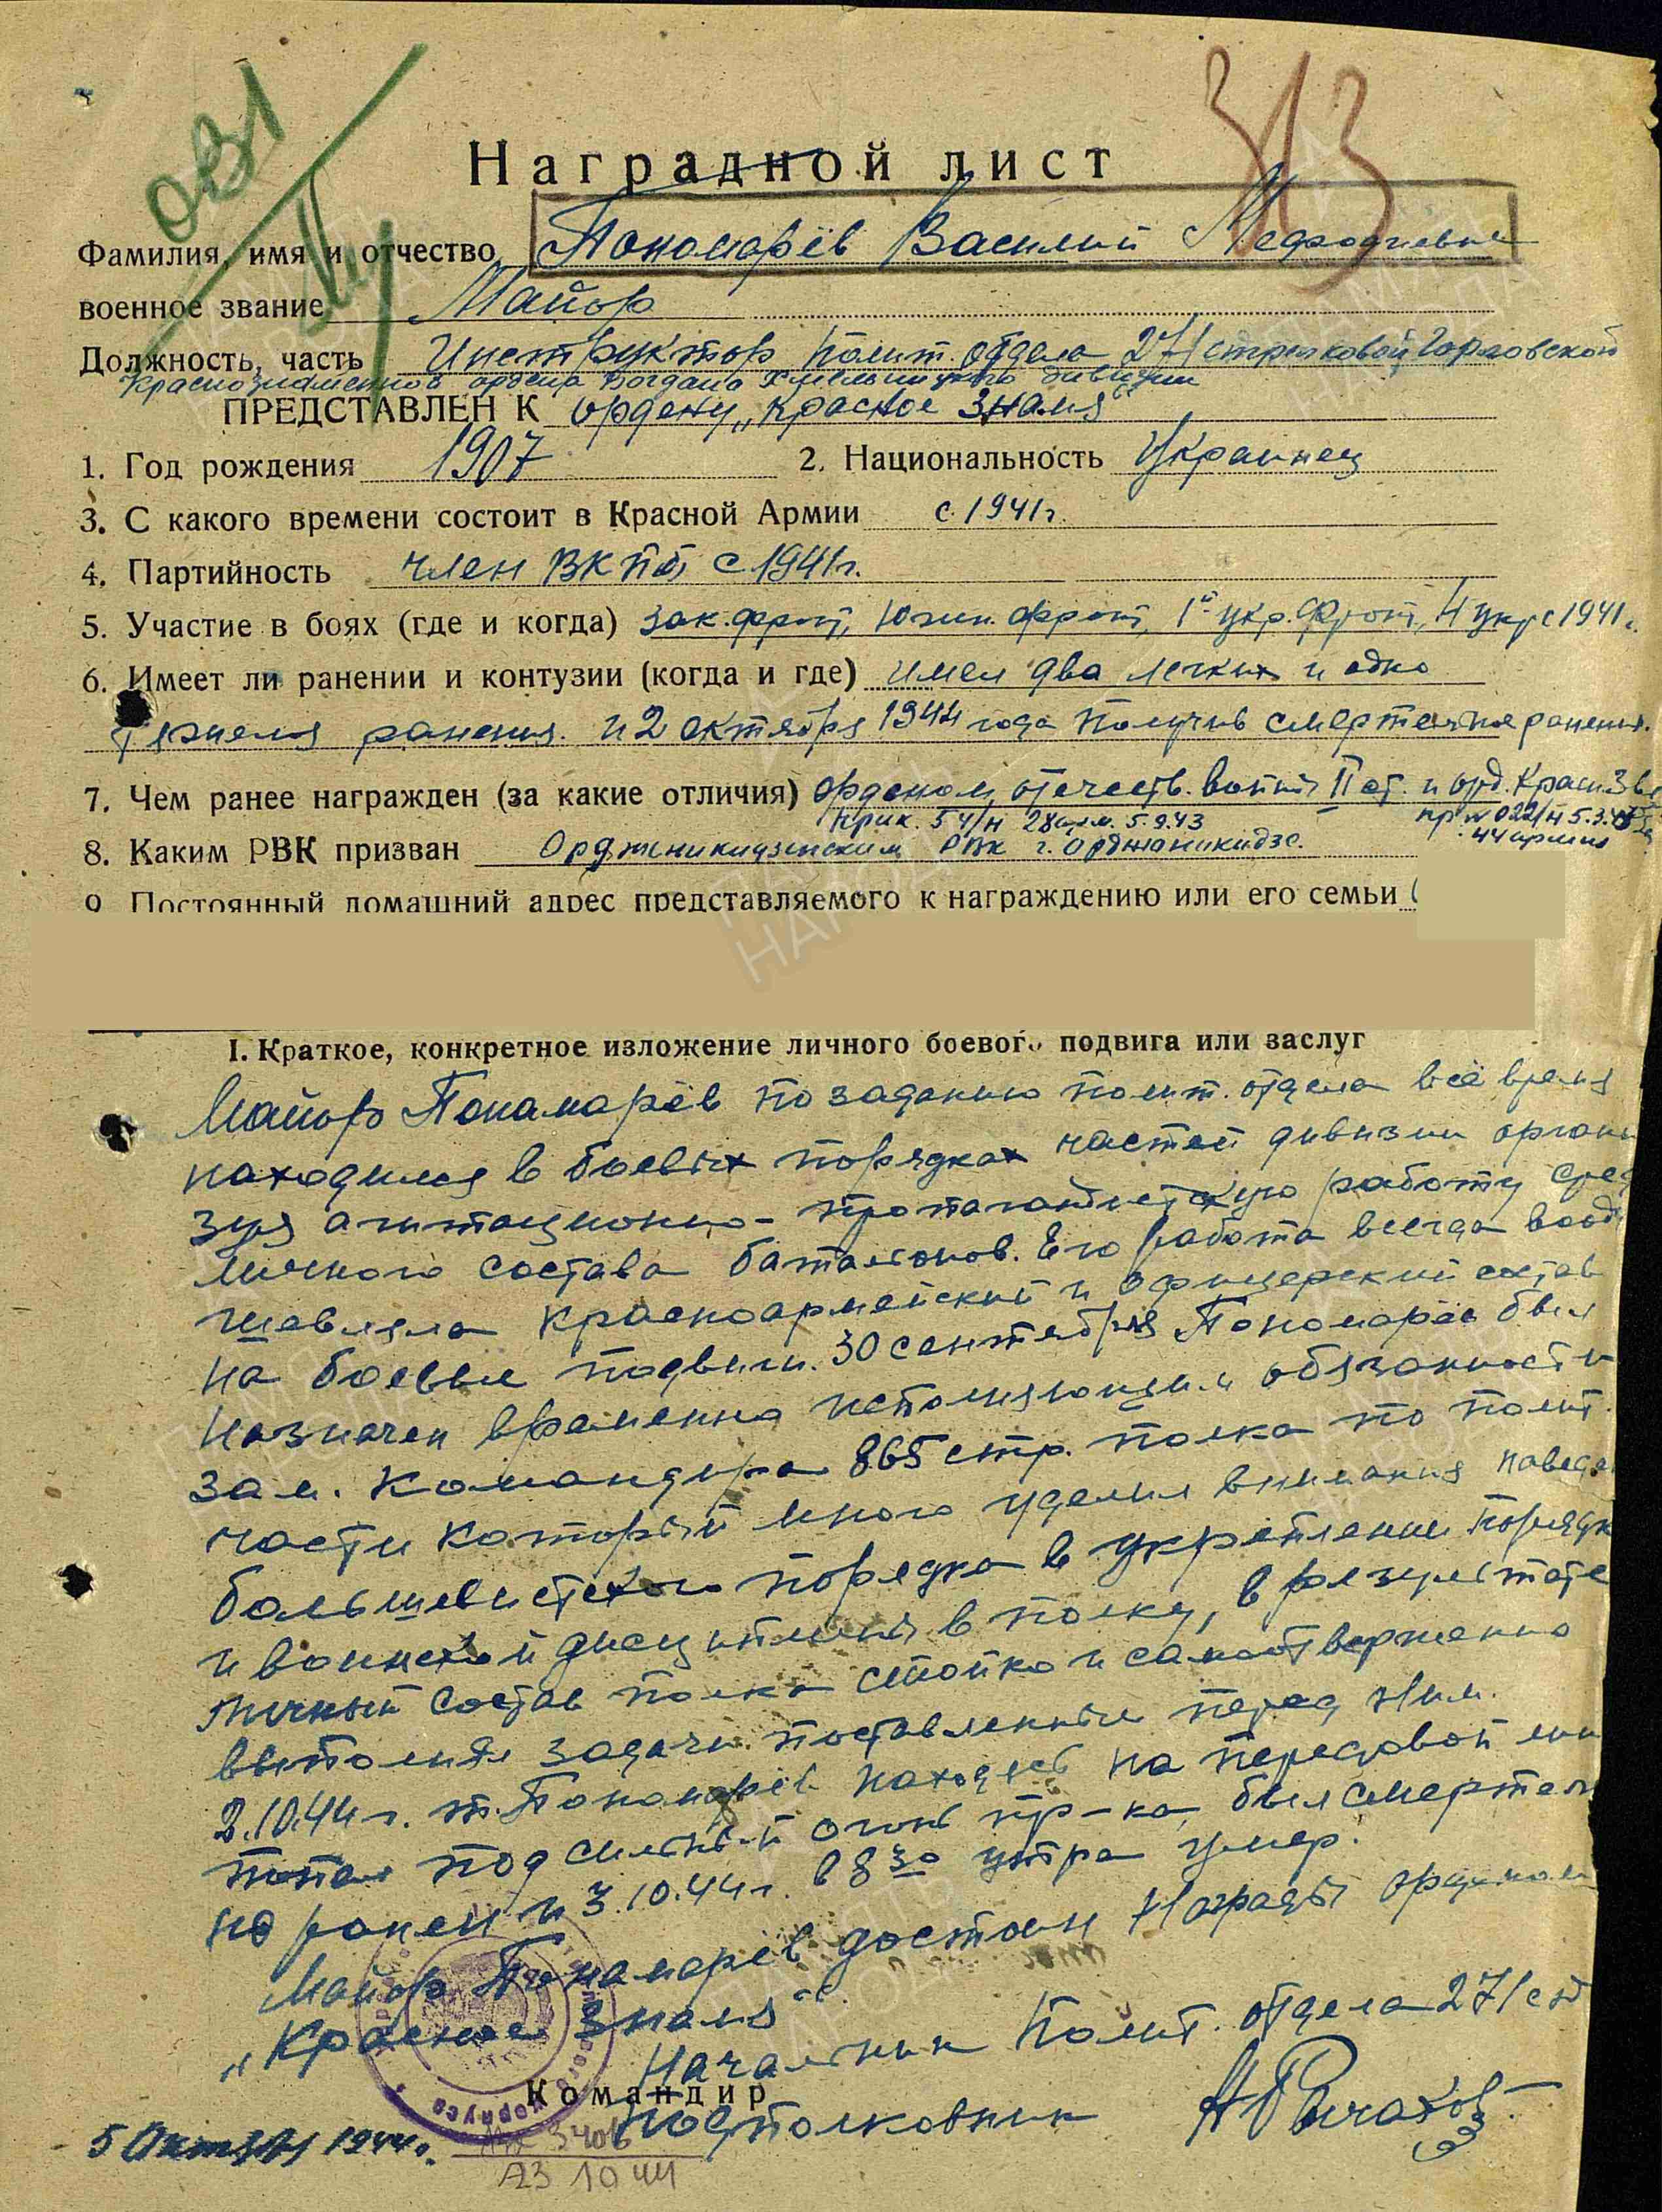 ОВ1
313
Наградной лист
Фамилия, имя и отчество Пономарёв Василий Мефодиевич
военное звание Майор
Должность, часть Инструктор полит. отдела 271 стрелковой Горловской
Краснознаменной ордена Богдана Хмельницкого дивизии
ПРЕДСТАВЛЕН К ордену „Красное Знамя“
1. Год рождения 1907 2. Национальность Украинец
3. С какого времени состоит в Красной Армии с 1941г.
4. Партийность член ВКПб с 1941г.
5. Участие в боях (где и когда) Зак. фрот, Южн. фронт, 1й Укр. Фронт, 4 укр с 1941 г.
6. Имеет ли ранении и контузии (когда и где) имел два легких и одно
тяжелое ранения. и 2 октября 1944 года получив смертельное ранения.
7. Чем ранее награжден (за какие отличия) Орденом отечеств. войны II ст. и орд. Красн. Звезда
Прик. 5 ч/н 28 арм. 5.9.43 пр № 022/н 5.3.43
44 армии
8. Каким РВК призван Орджоникидзенским РВК г. Орджоникидзе.
9 Постоянный домашний адрес представляемого к награждению или его семьи
I. Краткое, конкретное изложение личного боевого подвига или заслуг
Майор Понамарёв по заданию полит. отдела всё время
находился в боевых порядках частей дивизии органи
зуя агитационно-пропагандистскую работу сред
личного состава баталионов. Его работа всегда вооду
шевляла красноармейский и офицерский состав
на боевые подвиги. 30 сентября Пономарёв был
назначен временно исполняющим обязанности
зам. командира 865 стр. полка по полит.
части который много уделил внимания наведен
большевистского порядка в укреплении порядк
и воинской дисциплины в полку, в результате
личный состав полка стойко и самоотверженно
выполнял задачи поставленные перед ним.
2.10.44г. т. Пономарёв находясь на передовой лин
попал под сильный огонь пр-ка, был смертель
но ранен и 3.10.44г. в 8 30 утра умер.
Майор Понамарёв достоин награды орденом
„Красное Знамя“.
Начальник Полит. отдела 271 сд
Командир
подполковник
5 Октября 1944г.
23 10 44